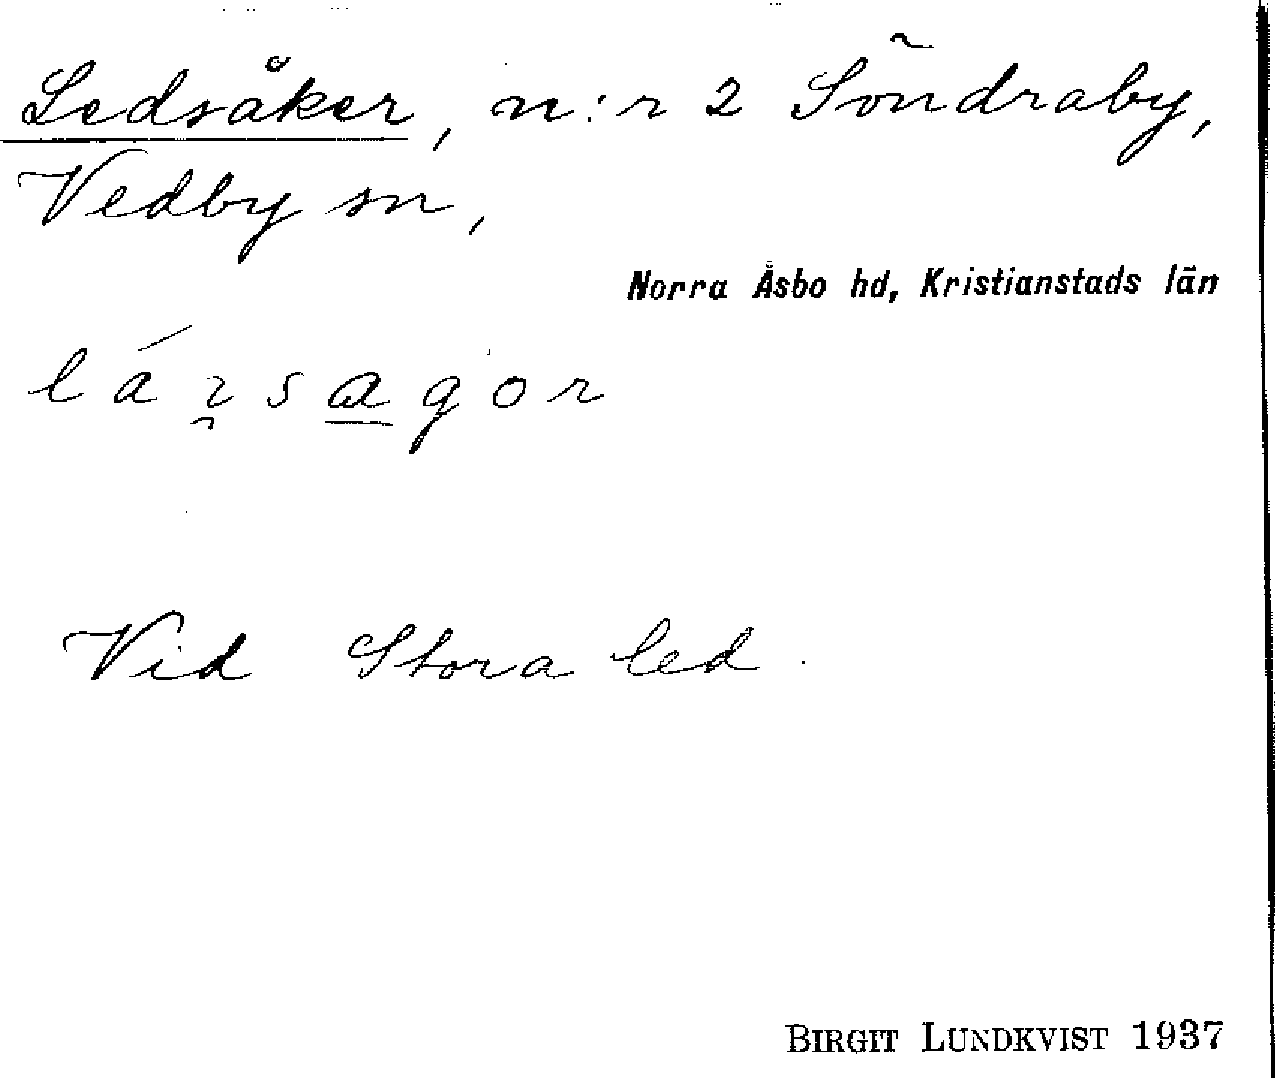 Ledsåker, n:r 2 Söndraby,
Vedby sn,
Norra Åsbo hd, Kristianstads län
Vid Stora led.
BIRGIT LUNDKVIST 1937